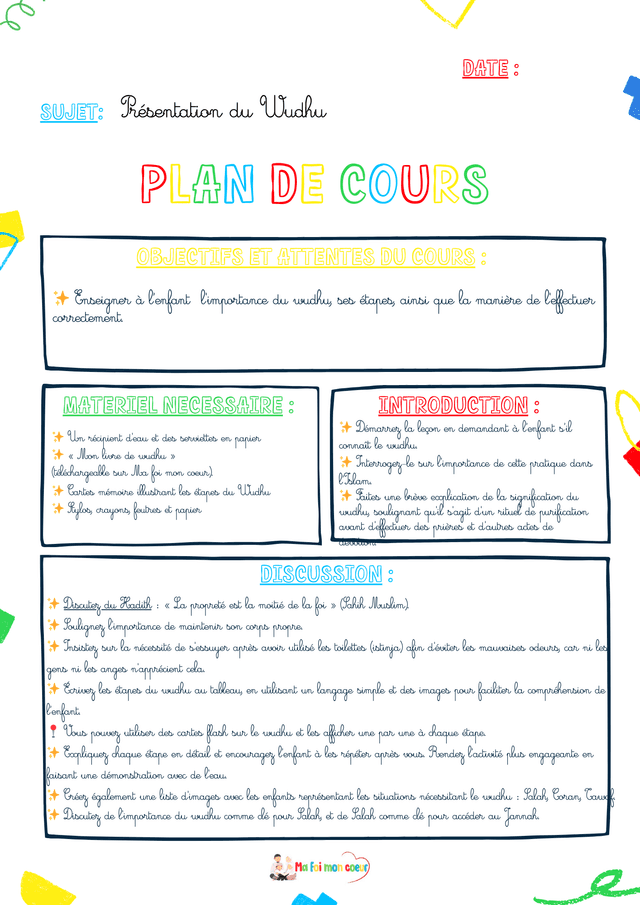 DATE :
SUJET: Présentation du Wudhu
PLAN DE COURS
OBJECTIFS ET ATTENTES DU COURS :
✨ Enseigner à l'enfant l'importance du wudhu, ses étapes, ainsi que la manière de l'effectuer
correctement.
MATERIEL NECESSAIRE :
✨ Un récipient d'eau et des serviettes en papier
✨ « Mon livre de wudhu »
(téléchargeable sur Ma foi mon coeur).
✨ Cartes mémoire illustrant les étapes du Wudhu
✨ Stylos, crayons, feutres et papier
INTRODUCTION :
✨ Démarrez la leçon en demandant à l'enfant s'il
connaît le wudhu.
✨ Interrogez-le sur l'importance de cette pratique dans
l'Islam.
✨ Faites une brève explication de la signification du
wudhu, soulignant qu'il s'agit d'un rituel de purification
avant d'effectuer des prières et d'autres actes de
dévotion.
DISCUSSION :
✨ Discutez du Hadith : « La propreté est la moitié de la foi » (Sahih Muslim).
✨ Soulignez l'importance de maintenir son corps propre.
✨ Insistez sur la nécessité de s'essuyer après avoir utilisé les toilettes (istinja) afin d'éviter les mauvaises odeurs, car ni les
gens ni les anges n'apprécient cela.
✨ Ecrivez les étapes du wudhu au tableau, en utilisant un langage simple et des images pour faciliter la compréhension de
l'enfant.
📍 Vous pouvez utiliser des cartes flash sur le wudhu et les afficher une par une à chaque étape.
✨ Expliquez chaque étape en détail et encouragez l'enfant à les répéter après vous. Rendez l'activité plus engageante en
faisant une démonstration avec de l'eau.
✨ Créez également une liste d'images avec les enfants représentant les situations nécessitant le wudhu : Salah, Coran, Tawaf.
✨ Discutez de l'importance du wudhu comme clé pour Salah, et de Salah comme clé pour accéder au Jannah.
Ma Foi mon coeur